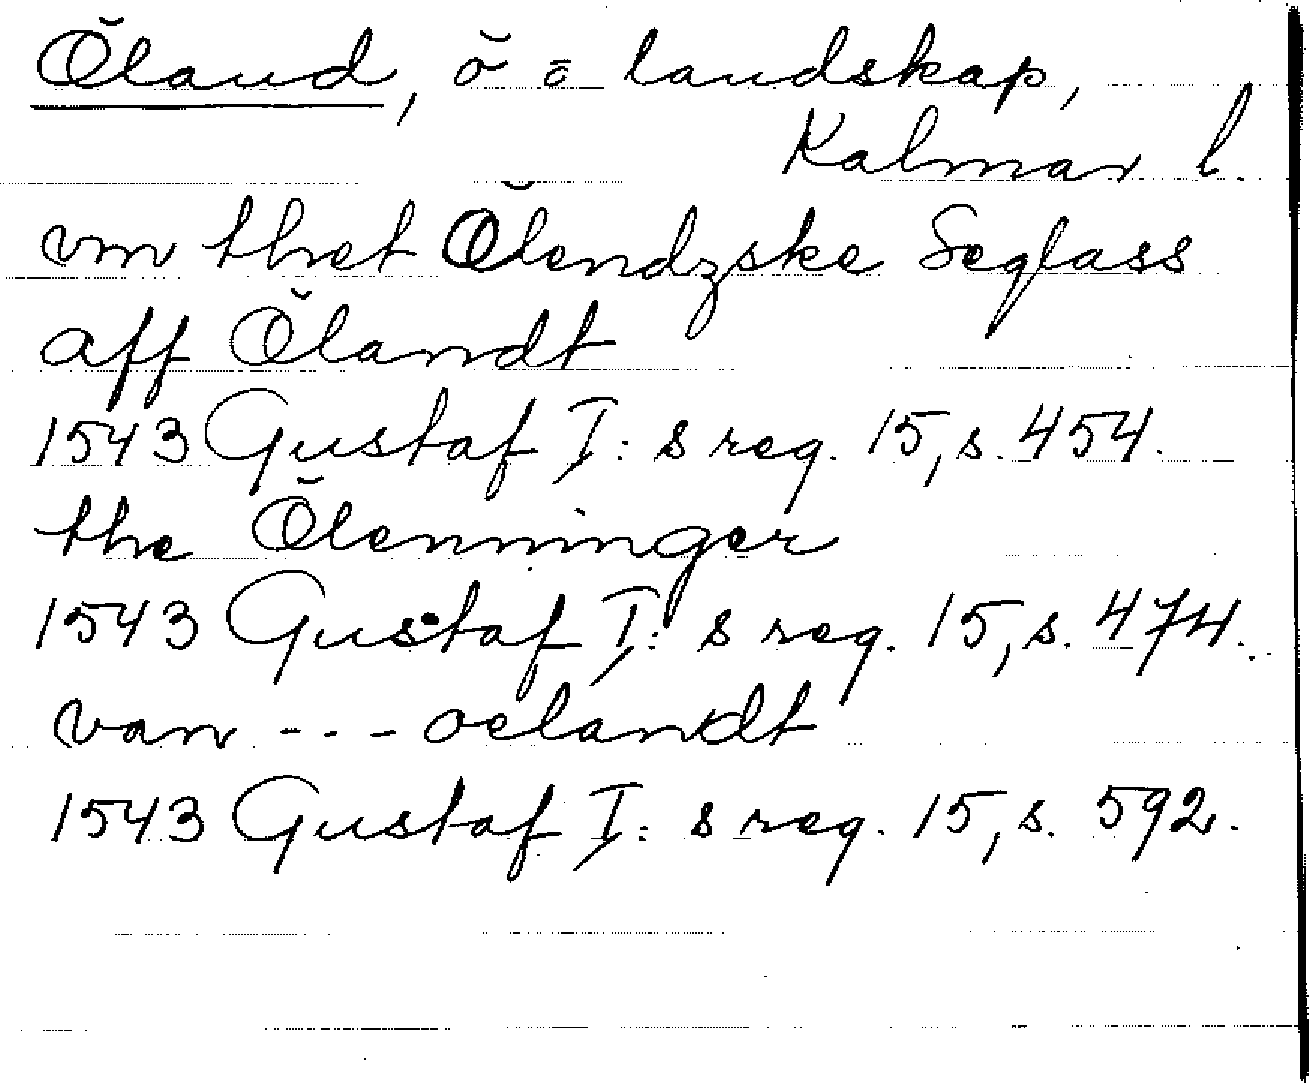 Öland, ö o landskap,
Kalmar l.
vm thet Ölendzske Seglass
aff Ölandt
1543 Gustaf I:s reg. 15, s. 454.
the Ölenninger
1543 Gustaf I:s reg. 15, s. 474.
van --- oelandt
1543 Gustaf I:s reg. 15, s. 592.